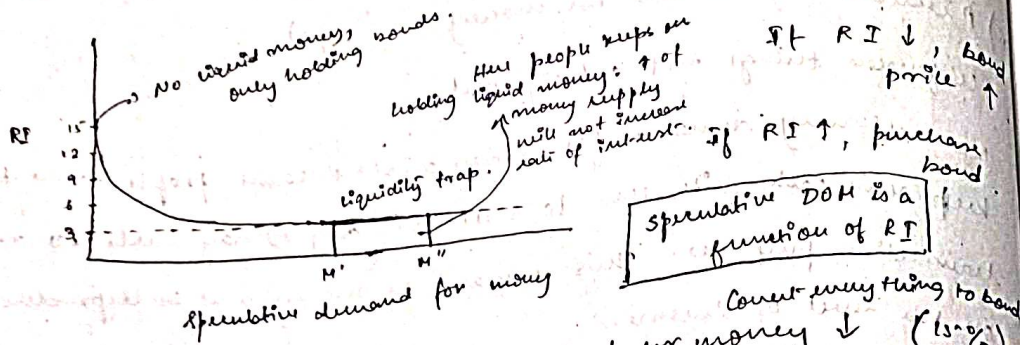 No liquid money,
only holding bonds.
Here people keeps on
holding liquid money: ↑ of
money supply
will not increase
rate of interest.
RI
15
12
9
6
3
liquidity trap.
M' M"
Speculative demand for money
If RI ↓, bond
price ↑
If RI ↑, purchase
bond
Speculative DOM is a
function of RI
Convert everything to bond
money ↓ (15%)